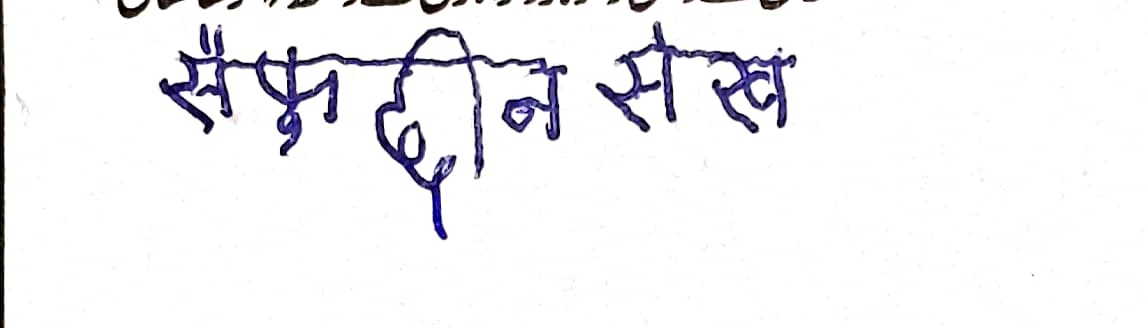 सैफुद्दीन सेख